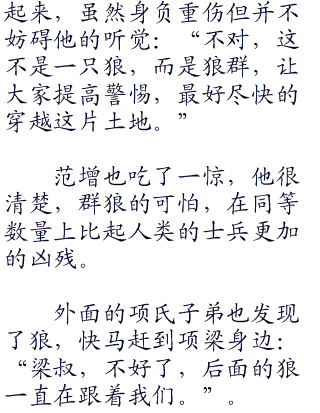 起来，虽然身负重伤但并不
妨碍他的听觉：“不对，这
不是一只狼，而是狼群，让
大家提高警惕，最好尽快的
穿越这片土地。”
范增也吃了一惊，他很
清楚，群狼的可怕，在同等
数量上比起人类的士兵更加
的凶残。
外面的项氏子弟也发现
了狼，快马赶到项梁身边：
“梁叔，不好了，后面的狼
一直在跟着我们。”。